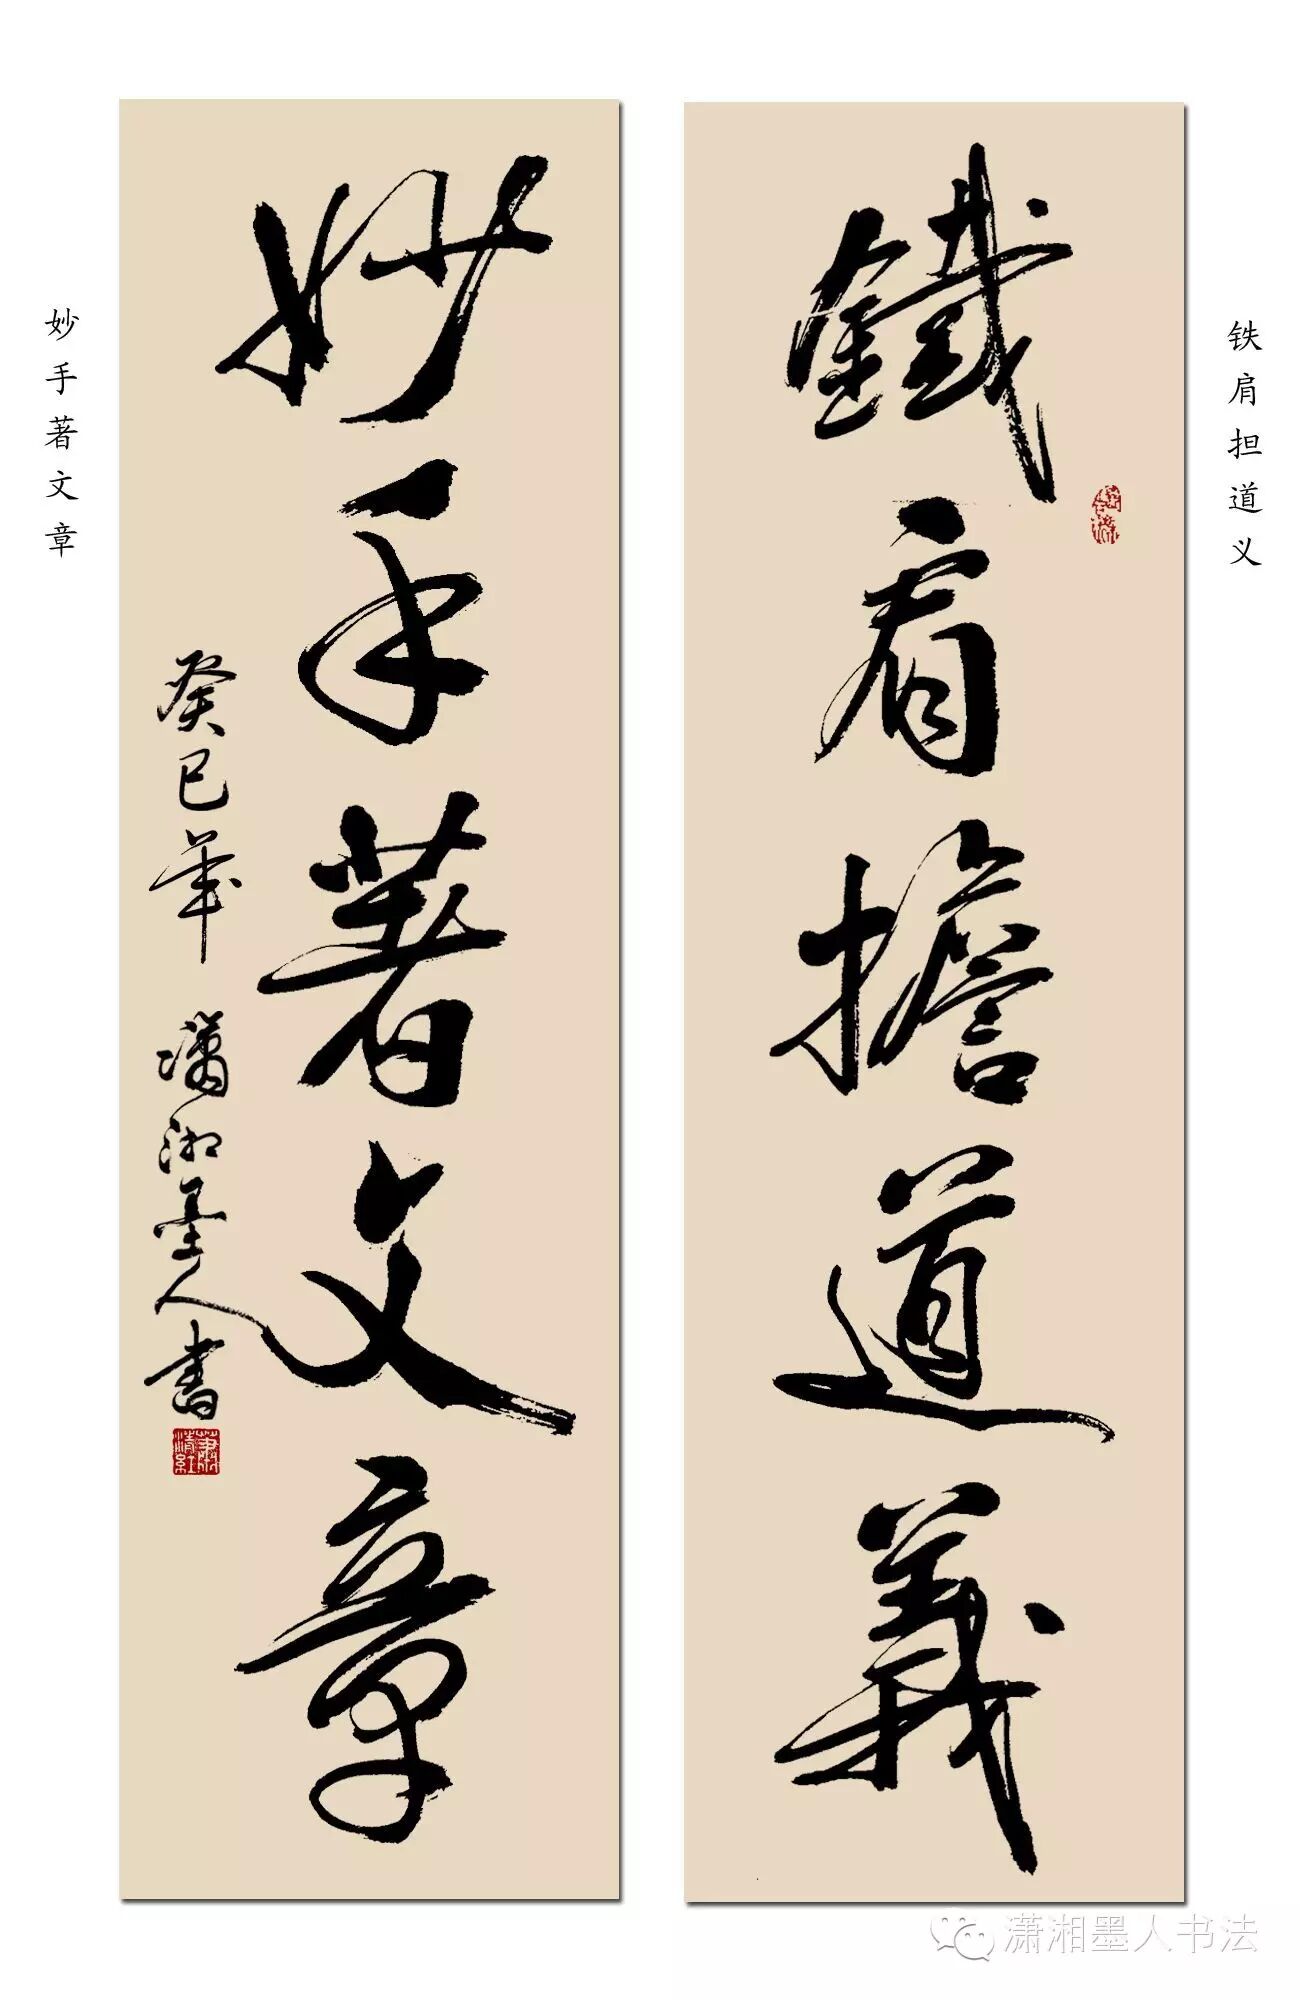 铁肩担道义
鐵肩擔道義
妙手著文章
癸巳年 瀟湘墨人書
蕭清紅
妙手著文章
潇湘墨人书法